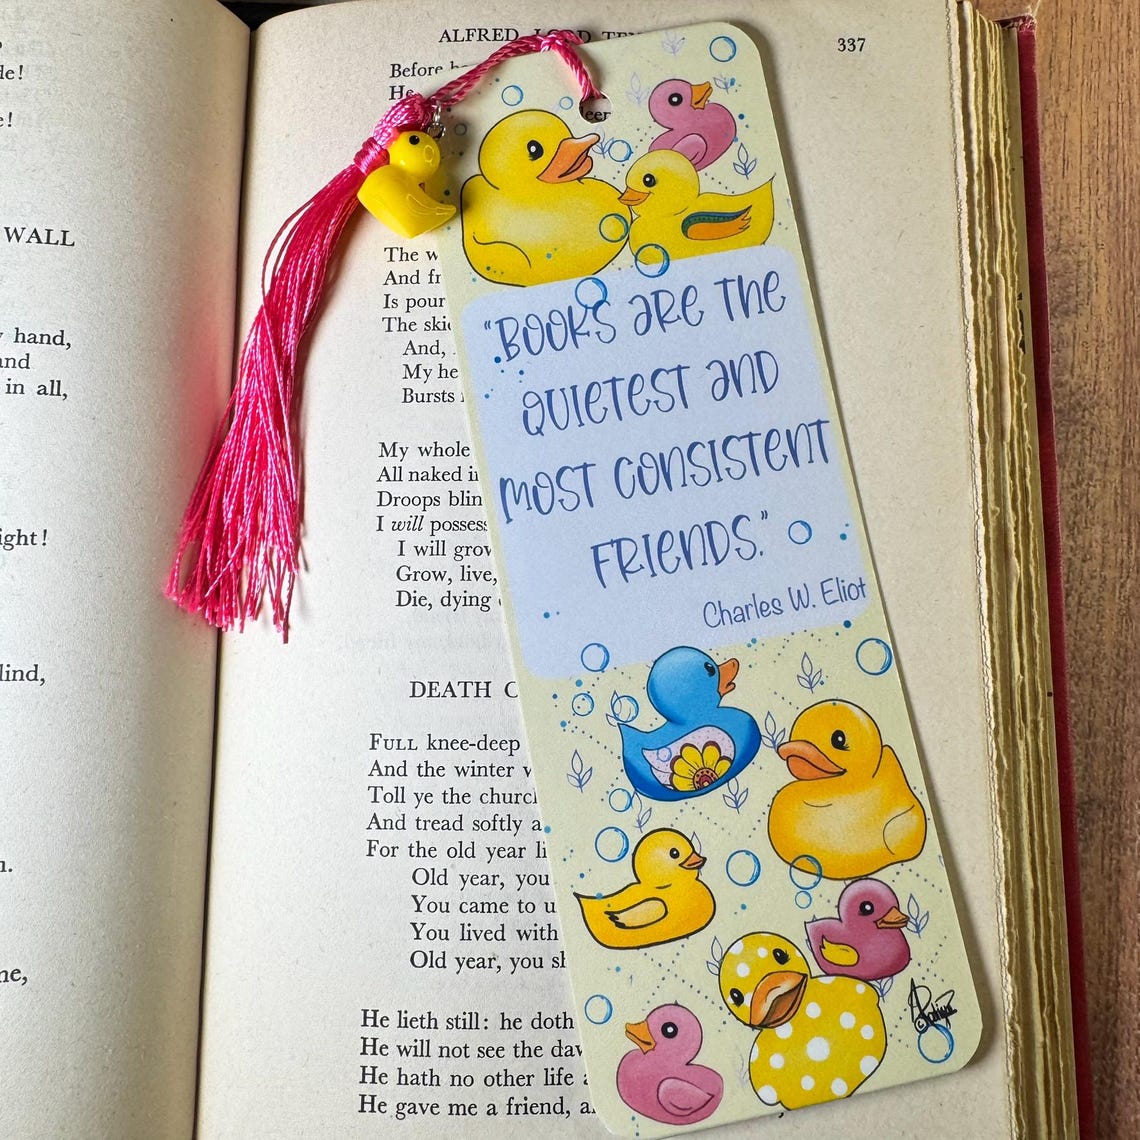 de!
e!
WALL
hand,
and
in all,
ight!
lind,
me,
ALFRED LORD
337
Before
He
The
And
Is pour
The
And,
My he
Bursts
My whole
All naked
Droops
I will possess
I will grow
Grow, live,
Die, dying
DEATH
FULL knee-deep
And the winter
Toll ye the church
And tread softly
For the old year
Old year, you
You came to
You lived with
Old year, you
He lieth still: he doth
He will not see the
He hath no other life
He gave me a friend,
"BOOKS ARE THE
QUIETEST AND
MOST CONSISTENT
FRIENDS."
Charles W. Eliot